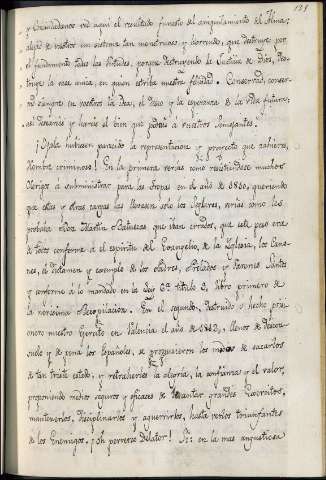 121
y Ciudadanos ved aquí el resultado funesto del aniquilamento del Alma;
alejad de vosotros un sistema tan monstruoso, y horrendo, que destruye por
el fundamento todas las virtudes, porque destruyendo la Justicia de Dios, des-
truye la base unica, en quien estriba nuestra felicidad. Conservad, conser-
vad siempre en vosotros la idea, el deseo y la esperanza de la vida futura,
así desearéis y haréis el bien que podáis a vuestros Semejantes.
¡Ojalá hubiesen parecido la representacion y proyecto que refieres,
Hombre criminoso! En la primera verías como resistiendose muchos
Clerigos a subministrar para las tropas en el año de 1810, queriendo
que estas y otras cargas las llevasen solo los Seglares, verías como les
probaba Dn. Martin Batuecas que iban errados, que este peso era
de todos conforme al espiritu del Evangelio, de la Iglesia, los Cano-
nes, el Dictamen y exemplo de los Padres, Prelados y Varones Santos
y conforme a lo mandado en la Ley 6ª titulo 3, libro primero de
la novisima Recopilacion. En el segundo, destruido y hecho pri-
sionero nuestro Exercito en Valencia el año de 1812, llenos de descon-
suelo y de pena los Españoles, se proporcionaron los medios de sacarlos
de tan triste estado, y retraherles la alegria, la confianza y el valor,
proponiendo medios seguros y eficaces de levantar grandes Exercitos,
mantenerlos, disciplinarlos y aguerrirlos, hasta verlos triunfantes
de los Enemigos. ¡Oh perverso Delator! Sí: en la mas angustiosa